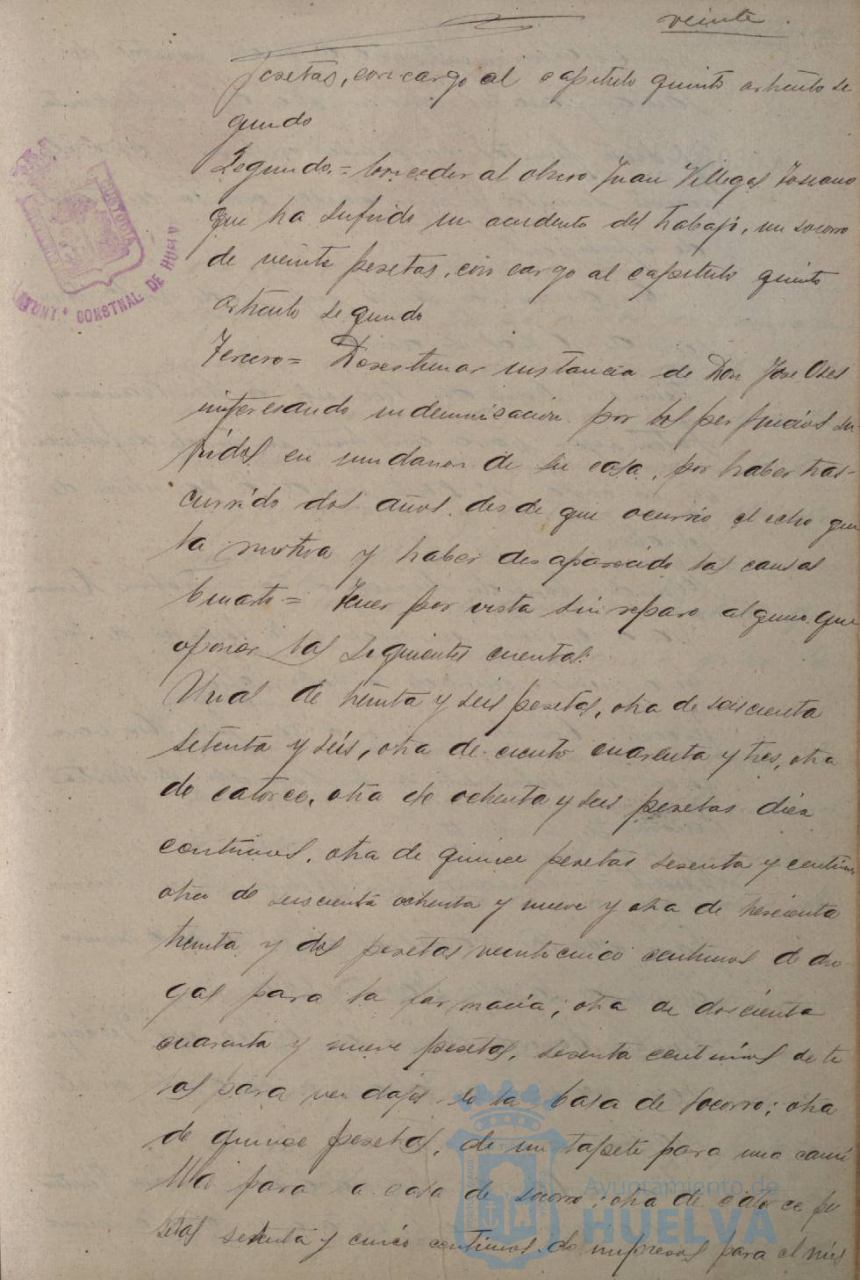 veinte
pesetas, con cargo al capitulo quinto articulo se
gundo
Segundo = Conceder al obrero Juan Villegas
que ha sufrido un accidente del trabajo, un socorro
de veinte pesetas, con cargo al capitulo quinto
articulo segundo
Tercero = Desestimar instancia de Don Jose Oses
interesando indemnización por los perjuicios su
fridos en un danos de su casa, por haber tras-
currido dos años desde que ocurrio el echo que
la motiva y haber desaparecido las causas
Cuarto = Tener por vista sin reparo alguno que
oponer las siguientes cuentas:
Unas de treinta y seis pesetas, otra de seiscienta
setenta y seis, otra de ciento cuarenta y tres, otra
de catorce, otra de ochenta y seis pesetas diez
centimos, otra de quince pesetas sesenta y centimos
otra de seiscienta ochenta y nueve y otra de trescienta
treinta y dos pesetas veinticinco centimos de dro
gas para la farmacia; otra de doscienta
cuarenta y nueve pesetas, sesenta centimos de te
las para vendajes de la Casa de Socorro; otra
de quince pesetas, de un tapete para una cami
lla para a casa de socorro; otra de catorce pe
setas setenta y cinco centimos de impresos para el mis
AYUNT.º CONSTNAL DE HUELV
Ayuntamiento de
HUELVA